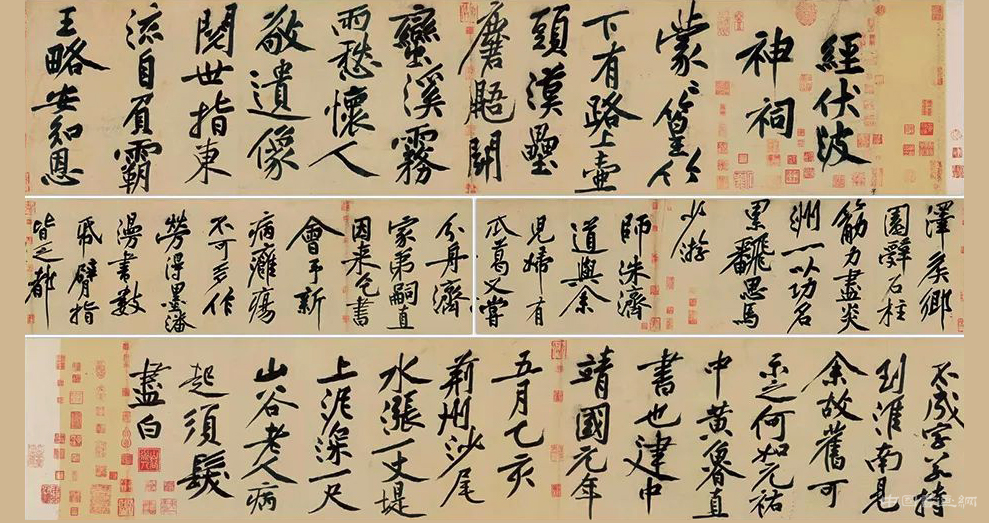 經伏波
神祠
蒙〻篁竹
下有路上壺
頭漢壘
麏鼯鬭
蠻溪霧
雨愁懷人
敬遺像
閱世指東
流自負霸
王略安知恩
澤侯鄉
園辭石柱
筋力盡炎
洲一以功名
累飜思馬
少游
師洙濟
道與余
兒婦有
瓜葛又嘗
分舟濟
家弟嗣直
因來乞書
會予新
病癰瘍
不可多作
勞得墨瀋
漫書數
紙臂指
皆乏都
不成字若持
到淮南見
余故舊可
示之何如元祐
中黃魯直
書也建中
靖國元年
五月乙亥
荊州沙尾
水漲一丈堤
上泥深一尺
山谷老人病
起須髮
盡白